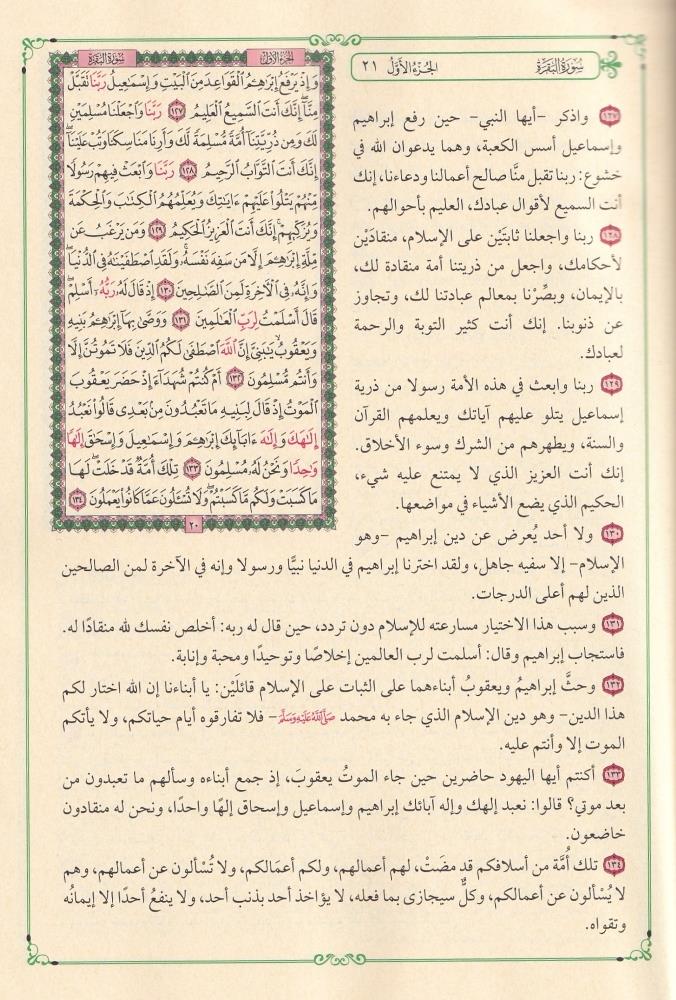 سُورَةُ البَقَرَةِ الجُزءُ الأَوَّلُ ٢١
١٢٧ واذكر -أيها النبي- حين رفع إبراهيم
وإسماعيل أسس الكعبة، وهما يدعوان الله في
خشوع: ربنا تقبل منَّا صالح أعمالنا ودعاءنا، إنك
أنت السميع لأقوال عبادك، العليم بأحوالهم.
١٢٨ ربنا واجعلنا ثابتَيْن على الإسلام، منقادَيْن
لأحكامك، واجعل من ذريتنا أمة منقادة لك،
بالإيمان، وبصِّرْنا بمعالم عبادتنا لك، وتجاوز
عن ذنوبنا. إنك أنت كثير التوبة والرحمة
لعبادك.
١٢٩ ربنا وابعث في هذه الأمة رسولا من ذرية
إسماعيل يتلو عليهم آياتك ويعلمهم القرآن
والسنة، ويطهرهم من الشرك وسوء الأخلاق.
إنك أنت العزيز الذي لا يمتنع عليه شيء،
الحكيم الذي يضع الأشياء في مواضعها.
١٣٠ ولا أحد يُعرض عن دين إبراهيم -وهو
الإسلام- إلا سفيه جاهل، ولقد اخترنا إبراهيم في الدنيا نبيًّا ورسولا وإنه في الآخرة لمن الصالحين
الذين لهم أعلى الدرجات.
١٣١ وسبب هذا الاختيار مسارعته للإسلام دون تردد، حين قال له ربه: أخلص نفسك لله منقادًا له.
فاستجاب إبراهيم وقال: أسلمت لرب العالمين إخلاصًا وتوحيدًا ومحبة وإنابة.
١٣٢ وحثَّ إبراهيمُ ويعقوبُ أبناءهما على الثبات على الإسلام قائلَيْن: يا أبناءنا إن الله اختار لكم
هذا الدين- وهو دين الإسلام الذي جاء به محمد صَلَّى اللَّهُ عَلَيْهِ وَسَلَّمَ- فلا تفارقوه أيام حياتكم، ولا يأتكم
الموت إلا وأنتم عليه.
١٣٣ أكنتم أيها اليهود حاضرين حين جاء الموتُ يعقوبَ، إذ جمع أبناءه وسألهم ما تعبدون من
بعد موتي؟ قالوا: نعبد إلهك وإله آبائك إبراهيم وإسماعيل وإسحاق إلهًا واحدًا، ونحن له منقادون
خاضعون.
١٣٤ تلك أُمَّة من أسلافكم قد مضَتْ، لهم أعمالهم، ولكم أعمَالكم، ولا تُسْألون عن أعمالهم، وهم
لا يُسْألون عن أعمالكم، وكلٌّ سيجازى بما فعله، لا يؤاخذ أحد بذنب أحد، ولا ينفعُ أحدًا إلا إيمانُه
وتقواه.
الجزء الأول سورة البقرة
وَإِذْ يَرْفَعُ إِبْرَٰهِـۧمُ ٱلْقَوَاعِدَ مِنَ ٱلْبَيْتِ وَإِسْمَٰعِيلُ رَبَّنَا تَقَبَّلْ
مِنَّآ إِنَّكَ أَنتَ ٱلسَّمِيعُ ٱلْعَلِيمُ ١٢٧ رَبَّنَا وَٱجْعَلْنَا مُسْلِمَيْنِ
لَكَ وَمِن ذُرِّيَّتِنَآ أُمَّةً مُّسْلِمَةً لَّكَ وَأَرِنَا مَنَاسِكَنَا وَتُبْ عَلَيْنَآ
إِنَّكَ أَنتَ ٱلتَّوَّابُ ٱلرَّحِيمُ ١٢٨ رَبَّنَا وَٱبْعَثْ فِيهِمْ رَسُولًا
مِّنْهُمْ يَتْلُوا۟ عَلَيْهِمْ ءَايَٰتِكَ وَيُعَلِّمُهُمُ ٱلْكِتَٰبَ وَٱلْحِكْمَةَ
وَيُزَكِّيهِمْ إِنَّكَ أَنتَ ٱلْعَزِيزُ ٱلْحَكِيمُ ١٢٩ وَمَن يَرْغَبُ عَن
مِّلَّةِ إِبْرَٰهِـۧمَ إِلَّا مَن سَفِهَ نَفْسَهُۥ وَلَقَدِ ٱصْطَفَيْنَٰهُ فِى ٱلدُّنْيَا
وَإِنَّهُۥ فِى ٱلْءَاخِرَةِ لَمِنَ ٱلصَّٰلِحِينَ ١٣٠ إِذْ قَالَ لَهُۥ رَبُّهُۥٓ أَسْلِمْ
قَالَ أَسْلَمْتُ لِرَبِّ ٱلْعَٰلَمِينَ ١٣١ وَوَصَّىٰ بِهَآ إِبْرَٰهِـۧمُ بَنِيهِ
وَيَعْقُوبُ يَٰبَنِىَّ إِنَّ ٱللَّهَ ٱصْطَفَىٰ لَكُمُ ٱلدِّينَ فَلَا تَمُوتُنَّ إِلَّا
وَأَنتُم مُّسْلِمُونَ ١٣٢ أَمْ كُنتُمْ شُهَدَآءَ إِذْ حَضَرَ يَعْقُوبَ
ٱلْمَوْتُ إِذْ قَالَ لِبَنِيهِ مَا تَعْبُدُونَ مِنۢ بَعْدِى قَالُوا۟ نَعْبُدُ
إِلَٰهَكَ وَإِلَٰهَ ءَابَآئِكَ إِبْرَٰهِـۧمَ وَإِسْمَٰعِيلَ وَإِسْحَٰقَ إِلَٰهًا
وَٰحِدًا وَنَحْنُ لَهُۥ مُسْلِمُونَ ١٣٣ تِلْكَ أُمَّةٌ قَدْ خَلَتْ لَهَا
مَا كَسَبَتْ وَلَكُم مَّا كَسَبْتُمْ وَلَا تُسْـَٔلُونَ عَمَّا كَانُوا۟ يَعْمَلُونَ ١٣٤
٢٠